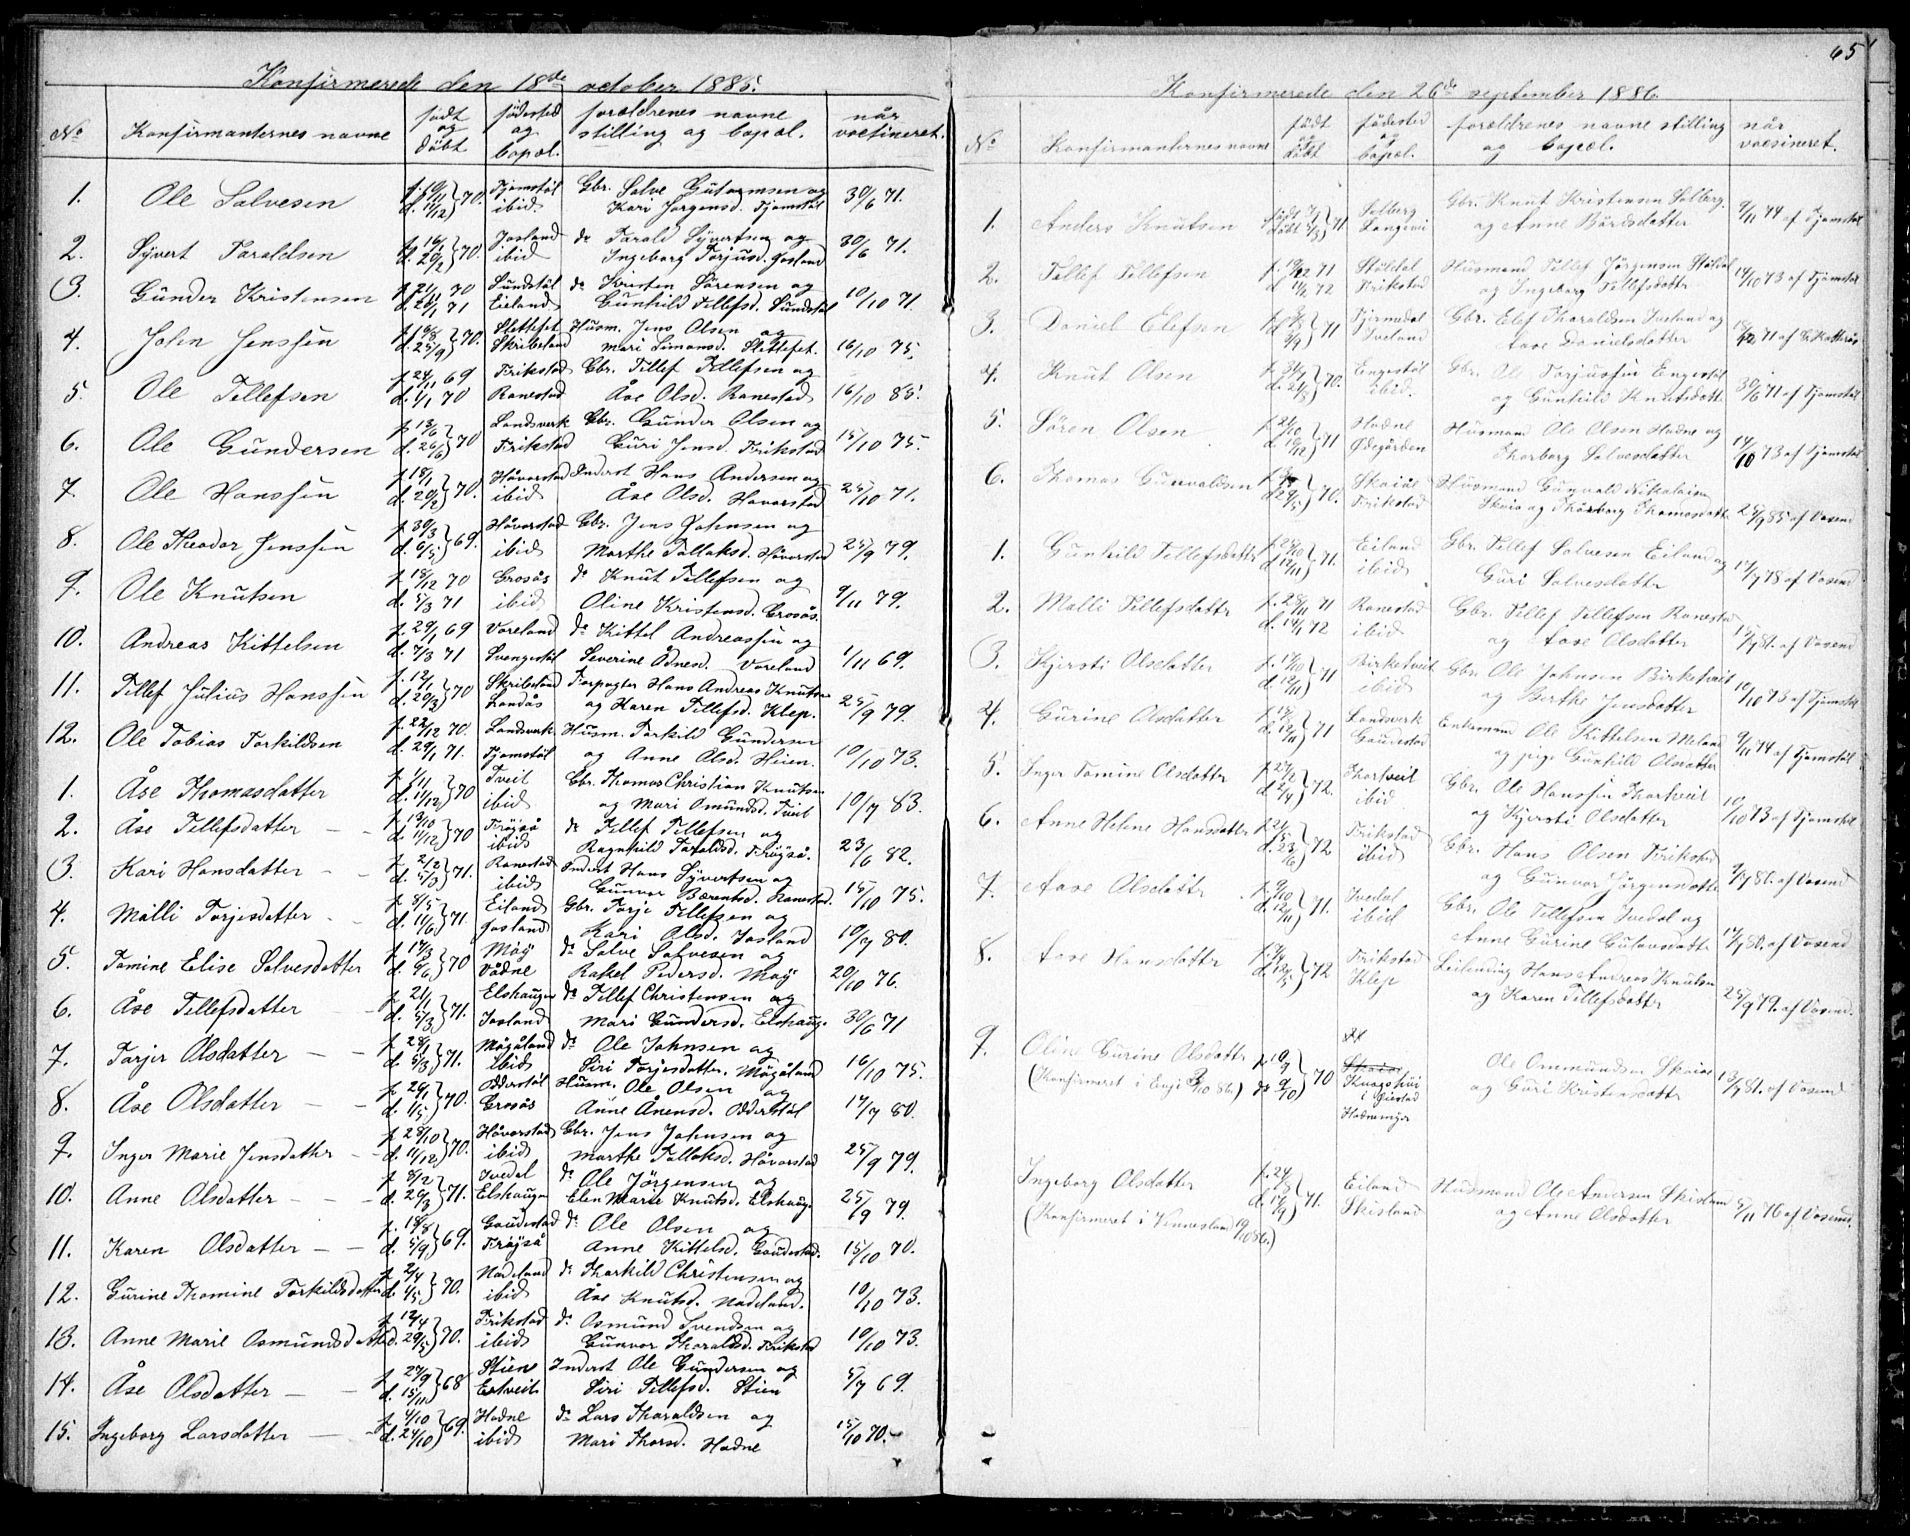 65
Konfirmerede den 18de october 1885.
No Konfirmanternes navne født og döbt födested og bopæl. forældrenes navne stilling og bopæl. når vaccineret.
1. Ole Salvesen f. 19/11 d. 11/12 } 70. Tjomstöl ibid Gbr. Salve Gutormsen og Kari Jørgensd. Tjomstöl 30/6 71.
2. Syvert Taraldsen f. 16/1 d. 20/2 } 70. Josland ibid do Tarald Syvertsen og Ingeborg Torjusd. Josland 30/6 71.
3. Gunder Kristensen f. 21/11 70 d. 26/1 71 Sundstöl Eieland do Kristen Sörensen og Gunhild Tellefsd. Sundstöl 10/10 71.
4. John Jenssen f. 19/8 d. 25/9 } 70. Slettefet Skribeland Husm. Jens Olsen og Mari Simonsd. Slettefet. 16/10 75.
5. Ole Tellefsen f. 24/11 69 d. 1/1 70 Frikstad Ranestad Gbr. Tellef Tellefsen og Åse Olsd. Ranestad 16/10 85.
6. Ole Gundersen f. 13/6 d. 26/6 } 70 Landsverk Frikstad Gbr. Gunder Olsen og Guri Jensd. Frikstad 15/10 75.
7. Ole Hanssen f. 18/1 d. 20/2 } 70. Håverstad ibid Inderst Hans Andersen og Åse Olsd. Haverstad 25/10 71.
8. Ole Theodor Jenssen f. 30/3 d. 6/5 } 69. Håverstad ibid Gbr. Jens Johnsen og Marthe Tallaksd. Håverstad 25/9 79.
9. Ole Knutsen f. 15/12 70 d. 5/3 71 Grosås ibid do Knut Tellefsen og Oline Kristensd. Grosås. 9/11 79.
10. Andreas Kittelsen f. 29/1 69 d. 7/3 71 Voreland Svengestöl do Kittel Andreassen og Severine Ödnesd. Voreland 1/11 69.
11. Tellef Julius Hanssen f. 12/1 d. 20/2 } 70 Skribeland Landås Forpagter Hans Andreas Knutsen og Karen Tellefsd. Klep. 25/9 79.
12. Ole Tobias Torkildsen f. 22/12 70. d. 29/1 71. Landsverk Tjomstöl Husm. Torkild Gundersen og Anne Olsd. Heien. 10/10 73.
1. Åse Thomasdatter f. 1/11 d. 11/12 } 70 Tveit ibid Gbr. Thomas Christian Knutsen og Mari Omundsd. Tveit 10/7 83.
2. Åse Tellefsdatter f. 19/10 d. 11/12 } 70 Fröyså ibid do Tellef Tellefsen og Ragnhild Taraldsd. Fröyså. 23/6 82.
3. Kari Hansdatter f. 2/2 d. 5/3 } 71. Ranestad ibid Inderst Hans Syvertsen og Gunvor Berentsd. Ranestad. 15/10 75.
4. Målli Torjesdatter f. 8/5 d. 11/6 } 71. Eiland Josland Gbr. Torje Tellefsen og Kari Olsd. Josland 10/7 80.
5. Tomine Elise Salvesdatter f. 14/3 d. 6/6 } 70 Möy Vådne do Salve Salvesen og Rakel Pedersd. Möy 20/10 76.
6. Åse Tellefsdatter f. 21/1 d. 5/3 } 71. Elshaugen Josland do Tellef Christensen og Mari Gundersd. Elshauge 30/6 71
7. Torjer Olsdatter f. 28/1 d. 5/3 } 71. Mögåland ibid do Ole Johnsen og Siri Torjesdatter. Mögåland 16/10 75.
8. Åse Olsdatter f. 26/1 d. 1/5 } 70. Odderstöl Grosås Husm. Ole Olsen og Anne Ånensd. Odderstöl 17/7 80.
9. Inger Marie Jensdatter f. 28/10 d. 11/12 } 70. Håverstad ibid Gbr. Jens Johnsen og Marthe Tallaksd. Håverstad 25/9 79.
10. Anne Olsdatter f. 8/2 d. 20/3 } 71. Ivedal Elshaugen do Ole Jörgensen og Elen Marie Knutsd. Elshauge 25/9 79.
11. Karen Olsdatter f. 18/8 d. 5/9 } 69. Gaudestad Fröyså do Ole Olsen og Anne Kittelsd. Gaudestad. 15/10 70.
12. Gurine Thomine Torkildsdatter f. 2/4 d. 1/5 } 70. Nodeland ibid do Tharkild Christensen og Åse Knutsd. Nodeland. 10/10 73.
13. Anne Marie Osmundsdatter f. 12/4 d. 29/5 } 70. Frikstad ibid do Osmund Svendsen og Gunvor Tharaldsd. Frikstad 10/10 73.
14. Åse Olsdatter f. 27/9 d. 15/11 } 68 Stiene Ertveit Inderst Ole Gundersen og Siri Tellefsd. Stien 5/7 69.
15. Ingeborg Larsdatter f. 4/10 d. 24/10 } 69. Hodne ibid do Lars Tharaldsen og Mari Thorsd. Hodne 15/10 70.
Konfirmerede den 26de september 1886.
No Konfirmanternes navne födt og döbt födested og bopæl. forældrenes navne stilling og bopæl. når vaccineret.
1. Anders Knutsen 71 Solberg Langeivi Gbr. Knut Kristensen Solberg og Anne Bårdsdatter 9/11 74 af Tjomstöl
2. Tellef Tellefsen f. 19/12 71 d. 11/2 72 Stöldal Frikstad Husmand Tellef Jörgensen Stöldal og Ingeborg Tellefsdatter 14/10 73 af Tjomstöl
3. Daniel Elefsen 71 Iveland Gbr. Elef Tharaldsen Iveland og Aase Danielsdatter 71 af
4. Knut Olsen 70. Engestöl ibid. Gbr. Ole Torjussen Engestöl og Gunhild Knutsdatter 30/6 71 af Tjomstöl
5. Sören Olsen f. 21/10 d. 10/12 } 71 Hodne Ødegården Husmand Ole Olsen Hodne og Thorborg Salvesdatter 14/10 73 af Tjomstöl
6. Thomas Gunvaldsen d. 29/5 70. Skaiå Frikstad Husmand Gunvald Nikolaisen Skaia og Thorborg Thomasdatter 25/9 85 af Aasend
1. Gunhild Tellefsdatter f. 28/10 d. 12/11 } 71. Eiland ibid Gbr. Tellef Salvesen Eiland og Guri Salvesdatter 17/7 78 af Aasend
2. Malli Tellefsdatter f. 28/11 71 d. 14/1 72 Ranestad ibid Gbr. Tellef Tellefsen Ranestad og Aase Olsdatter 81. af Aasend
3. Kjersti Olsdatter f. 17/10 d. 12/11 } 71 Birketveit ibid Gbr. Ole Johnsen Birketveit og Berthe Jensdatter 10/10 73 af Tjomstöl
4. Gurine Olsdatter 71 Landsverk Gaudestad Enkemand Ole Kittelsen Meland og pige Gunhild Olsdatter 9/11 74 af Tjomstöl
5. Inger Tomine Olsdatter f. 27/2 d. 2/4 } 72. Thortveit ibid Gbr. Ole Hanssen Thortveit og Kjersti Olsdatter 10/10 73 af Tjomstöl
6. Anne Helene Hansdatter f. 21/5 d. 23/6 } 72 Frikstad ibid Gbr. Hans Olsen Frikstad og Gunvor Jörgensdatter 9/7 81. af Aasend
7. Aase Olsdatter f. 9/10 d. 12/11 } 71. Ivedal ibid Gbr. Ole Tellefsen Ivedal og Anne Gurine Gutormsdatter 14/7 80. af Aasend
8. Aase Hansdatter f. 14/4 d. 12/5 } 72 Frikstad Klep Leilending Hans Andreas Knutsen og Karen Tellefsdatter 25/9 79. af Aasend.
9. Oline Gurine Olsdatter (Konfirmeret i Evje 3/10 86.) f. 10/9 d. 9/10 } 70 Knagshei i Hodnemyr Ole Ommundsen Skaiå og Guri Kristensdatter 13/7 81. af Aasend
Ingeborg Olsdatter (Konfirmeret i Vennesland 19/10 86.) f. 24/8 d. 17/9 } 71. Eiland Skisland Husmand Ole Andersen Skisland og Anne Olsdatter 5/11 76 af Aasend